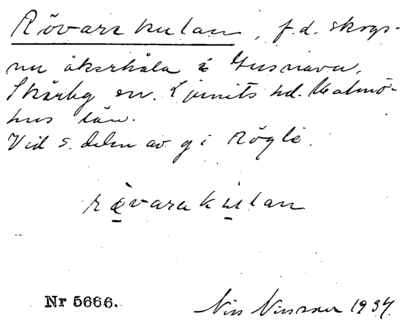 Rövarekulan, f.d. skogs-
nu åkerhåla i Gusnava,
Skårby sn. Ljunits hd. Malmö-
hus län.
Vid s. delen av gi Rögla.
rövarekulan
Nr 5666.
Nils Nilsson 1934.